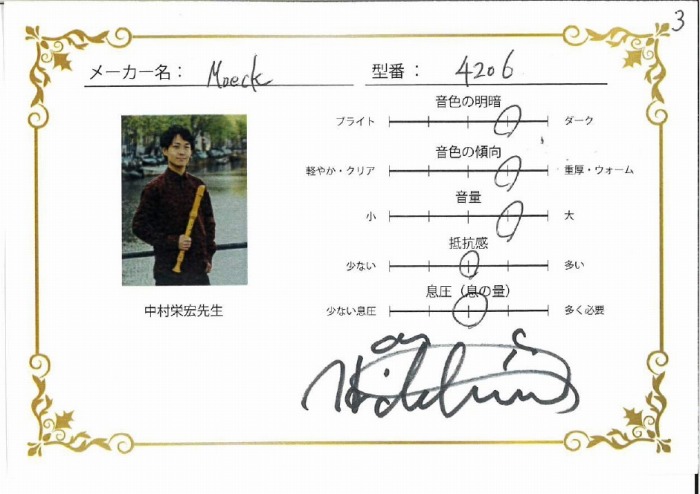 3
メーカー名： Moeck 型番： 4206
音色の明暗
ブライト ダーク
音色の傾向
軽やか・クリア 重厚・ウォーム
音量
小 大
抵抗感
少ない 多い
息圧（息の量）
少ない息圧 多く必要
中村栄宏先生